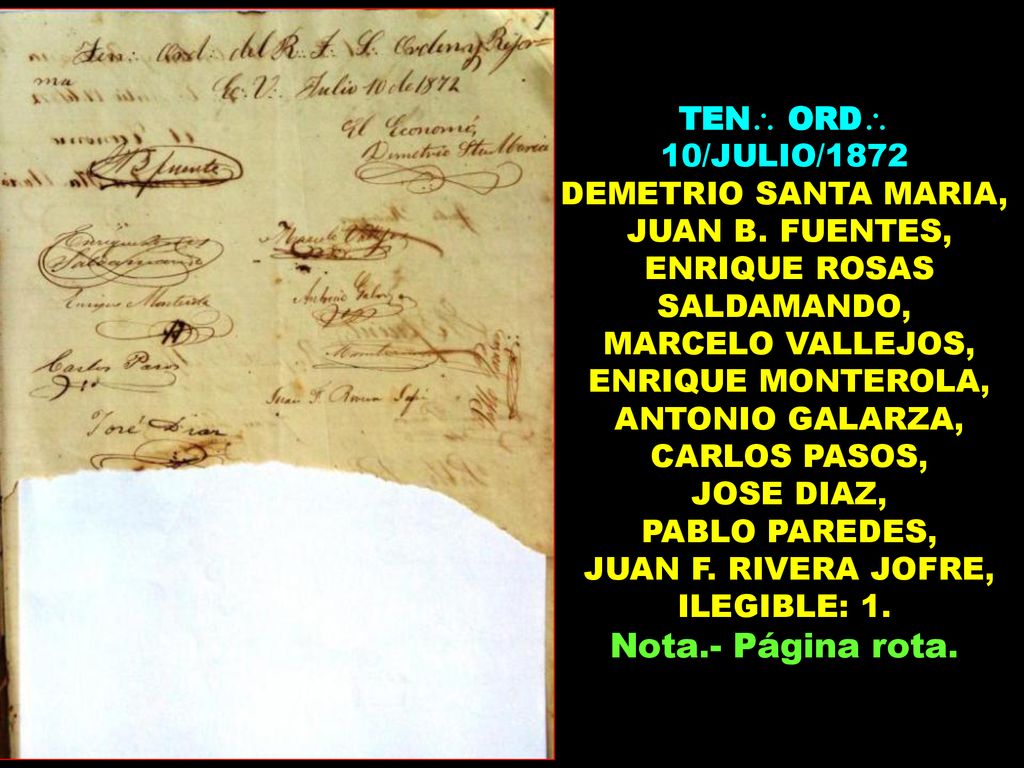 1
Ten∴ Ord∴ del R∴ L∴ S∴ Orden y Refor=
ma
E∴ V∴ Julio 10 de 1872
El Economó,
Demetrio Sta Maria
B Fuente
Enrique Rosas
Saldamando
Marcelo Vallejos
Enrique Monterola
Antonio Galarza
Carlos Pasos
Juan F. Rivera Jofré
José Diaz
TEN∴ ORD∴
10/JULIO/1872
DEMETRIO SANTA MARIA,
JUAN B. FUENTES,
ENRIQUE ROSAS
SALDAMANDO,
MARCELO VALLEJOS,
ENRIQUE MONTEROLA,
ANTONIO GALARZA,
CARLOS PASOS,
JOSE DIAZ,
PABLO PAREDES,
JUAN F. RIVERA JOFRE,
ILEGIBLE: 1.
Nota.- Página rota.